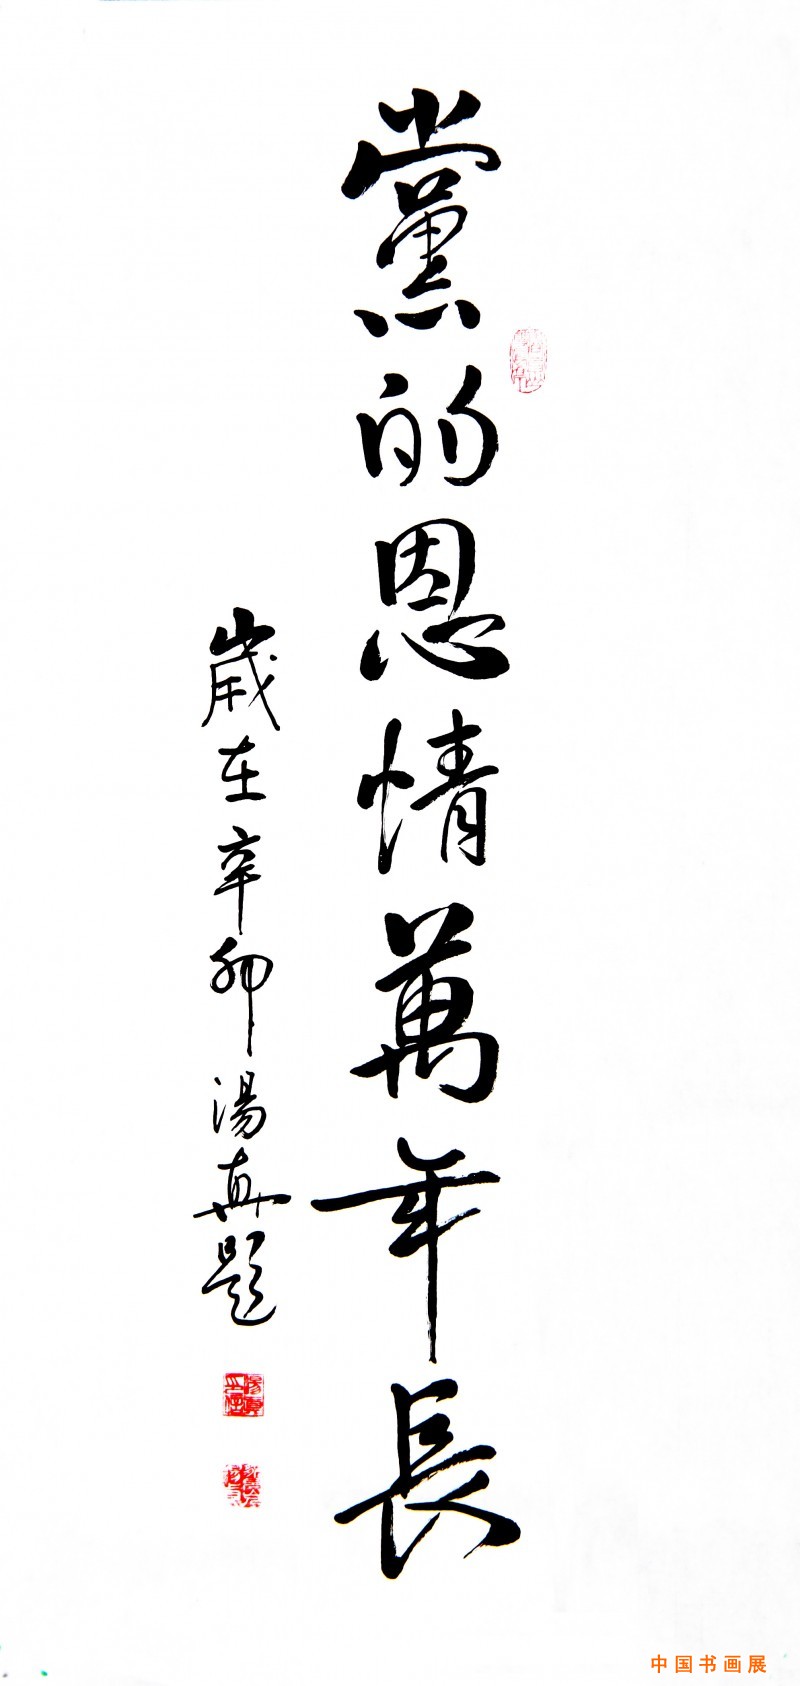 黨的恩情萬年長
歲在辛卯湯真題
中国书画展